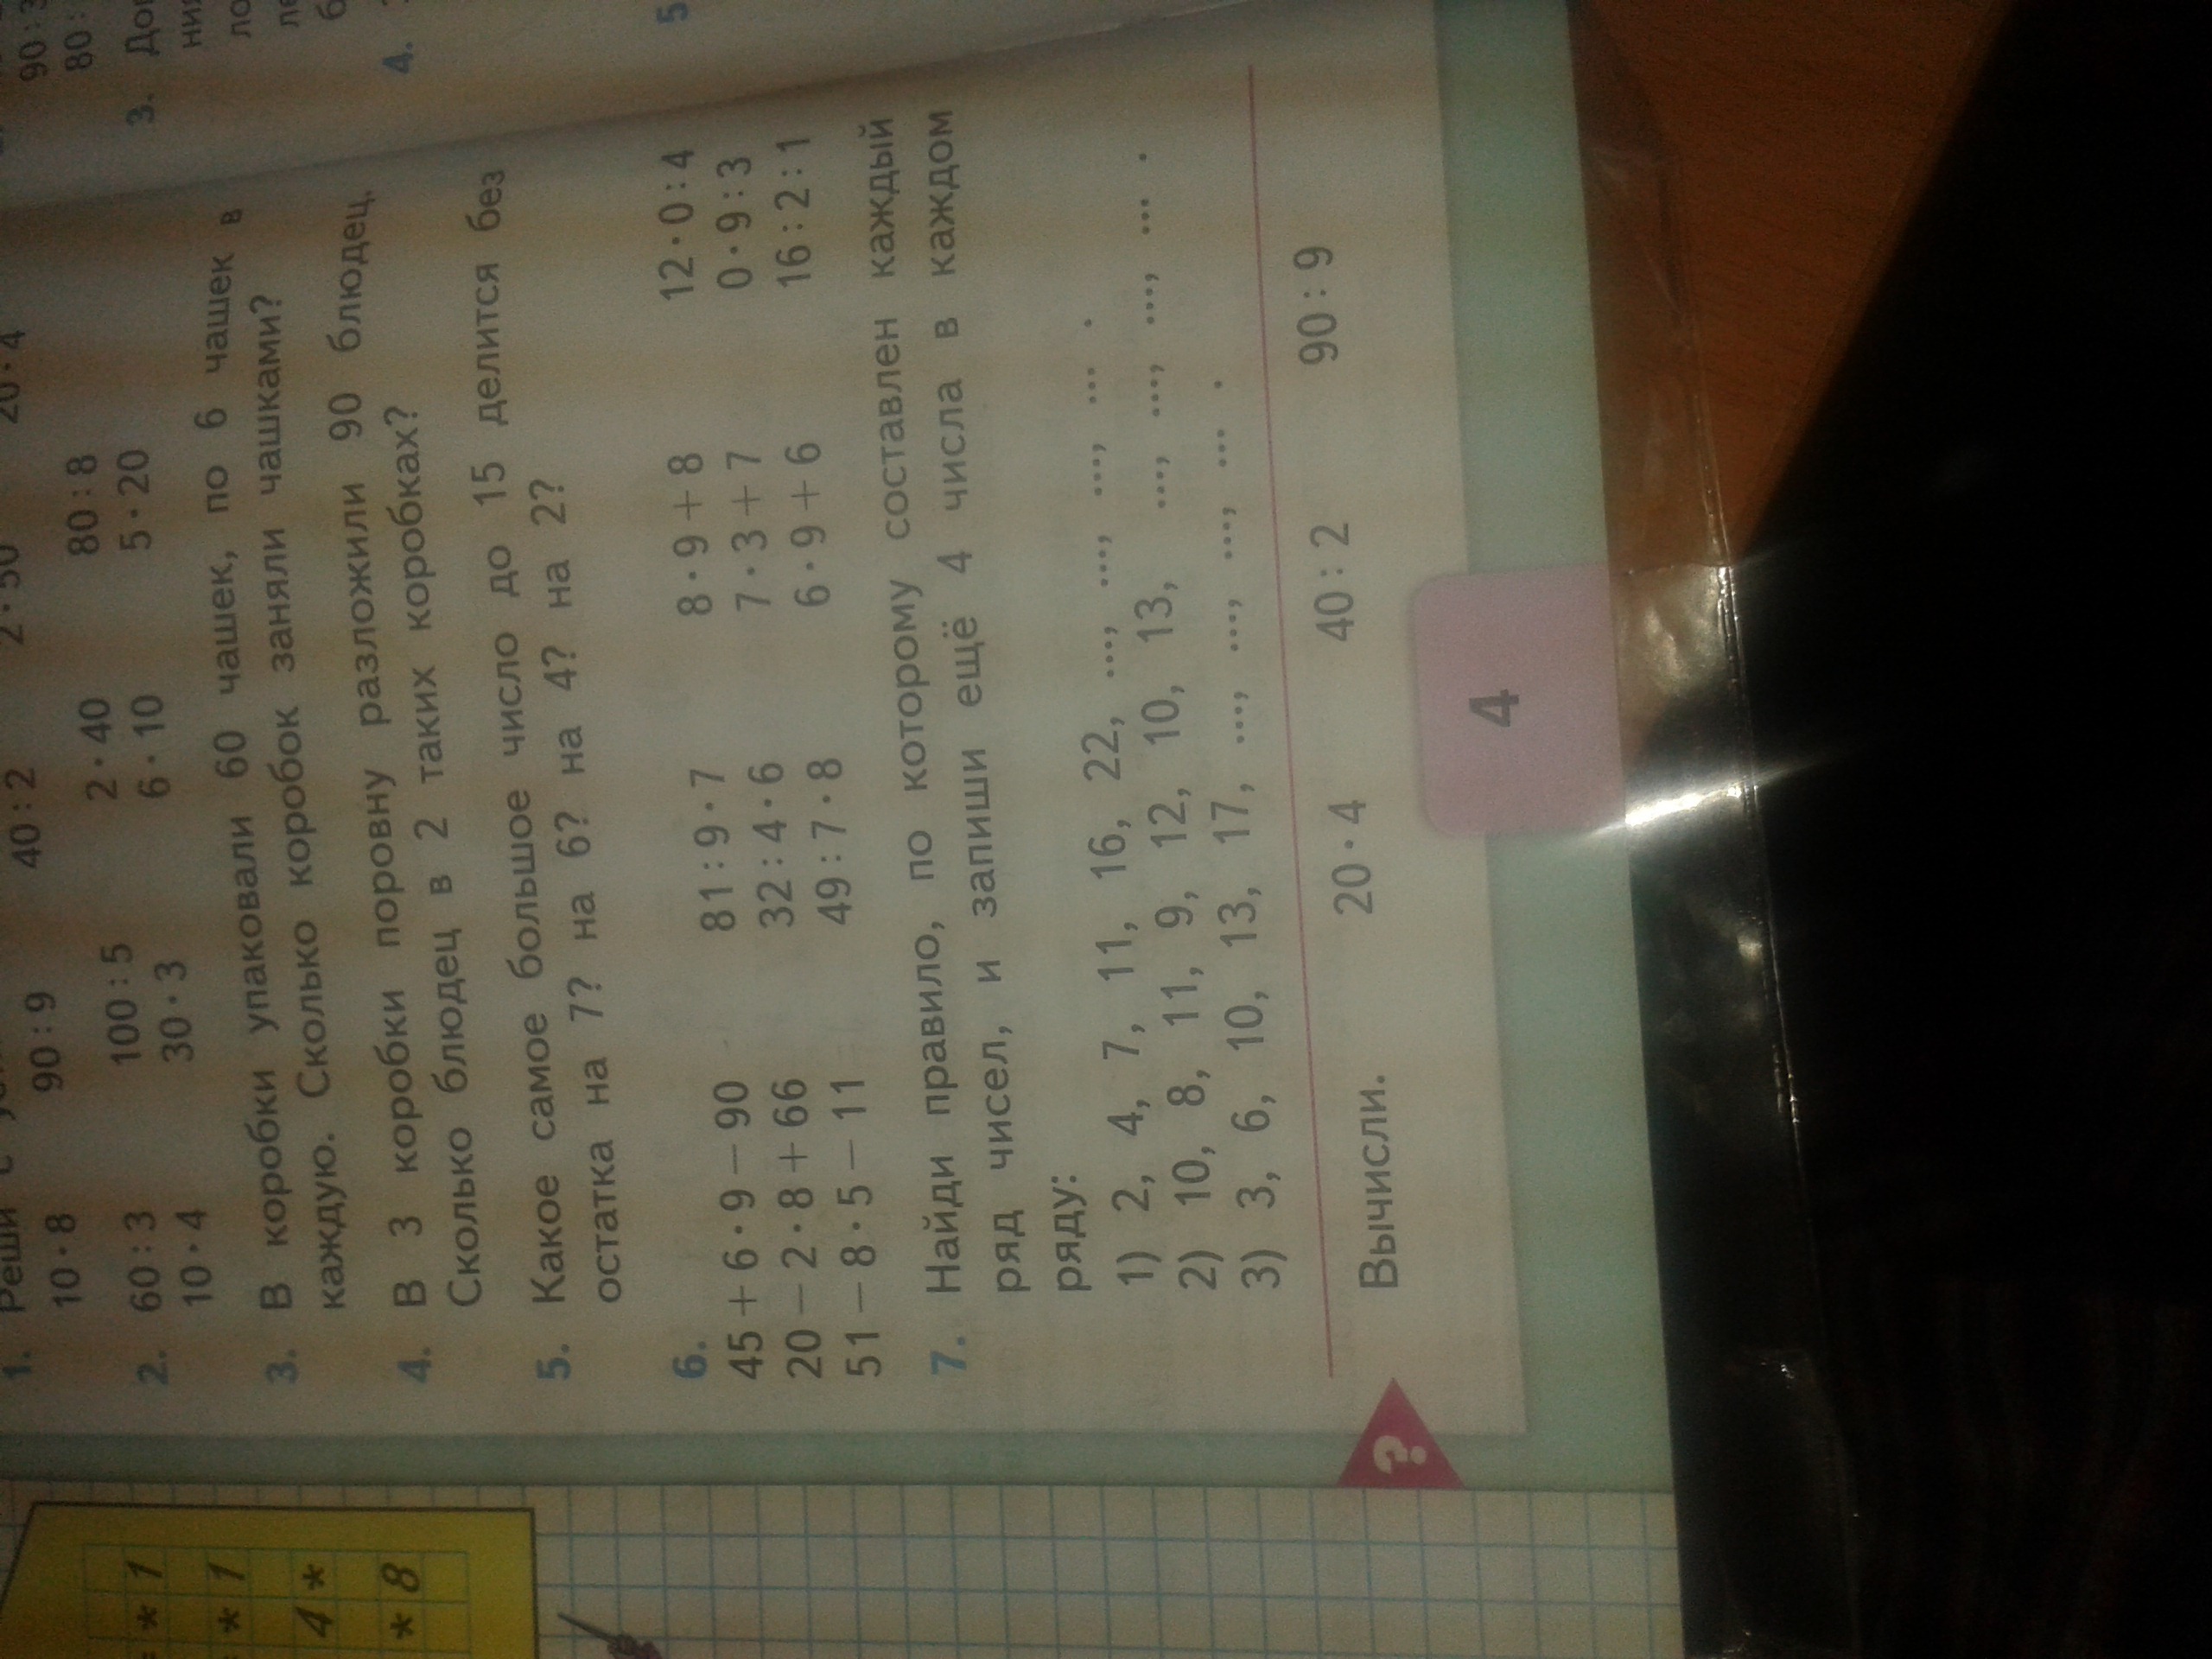 1. Реши с
10·8 90:9 40:2 2·50 20·4
2. 60:3 100:5 2·40 80:8
10·4 30·3 6·10 5·20
3. В коробки упаковали 60 чашек, по 6 чашек в
каждую. Сколько коробок заняли чашками?
4. В 3 коробки поровну разложили 90 блюдец.
Сколько блюдец в 2 таких коробках?
5. Какое самое большое число до 15 делится без
остатка на 7? на 6? на 4? на 2?
6.
45+6·9−90 81:9·7 8·9+8 12·0:4
20−2·8+66 32:4·6 7·3+7 0·9:3
51−8·5−11 49:7·8 6·9+6 16:2:1
7. Найди правило, по которому составлен каждый
ряд чисел, и запиши ещё 4 числа в каждом
ряду:
1) 2, 4, 7, 11, 16, 22, ..., ..., ..., ... .
2) 10, 8, 11, 9, 12, 10, 13, ..., ..., ..., ... .
3) 3, 6, 10, 13, 17, ..., ..., ..., ... .
? Вычисли. 20·4 40:2 90:9
4
* 1
* 1
4 *
* 8
90:3
80:
3.
4.
5